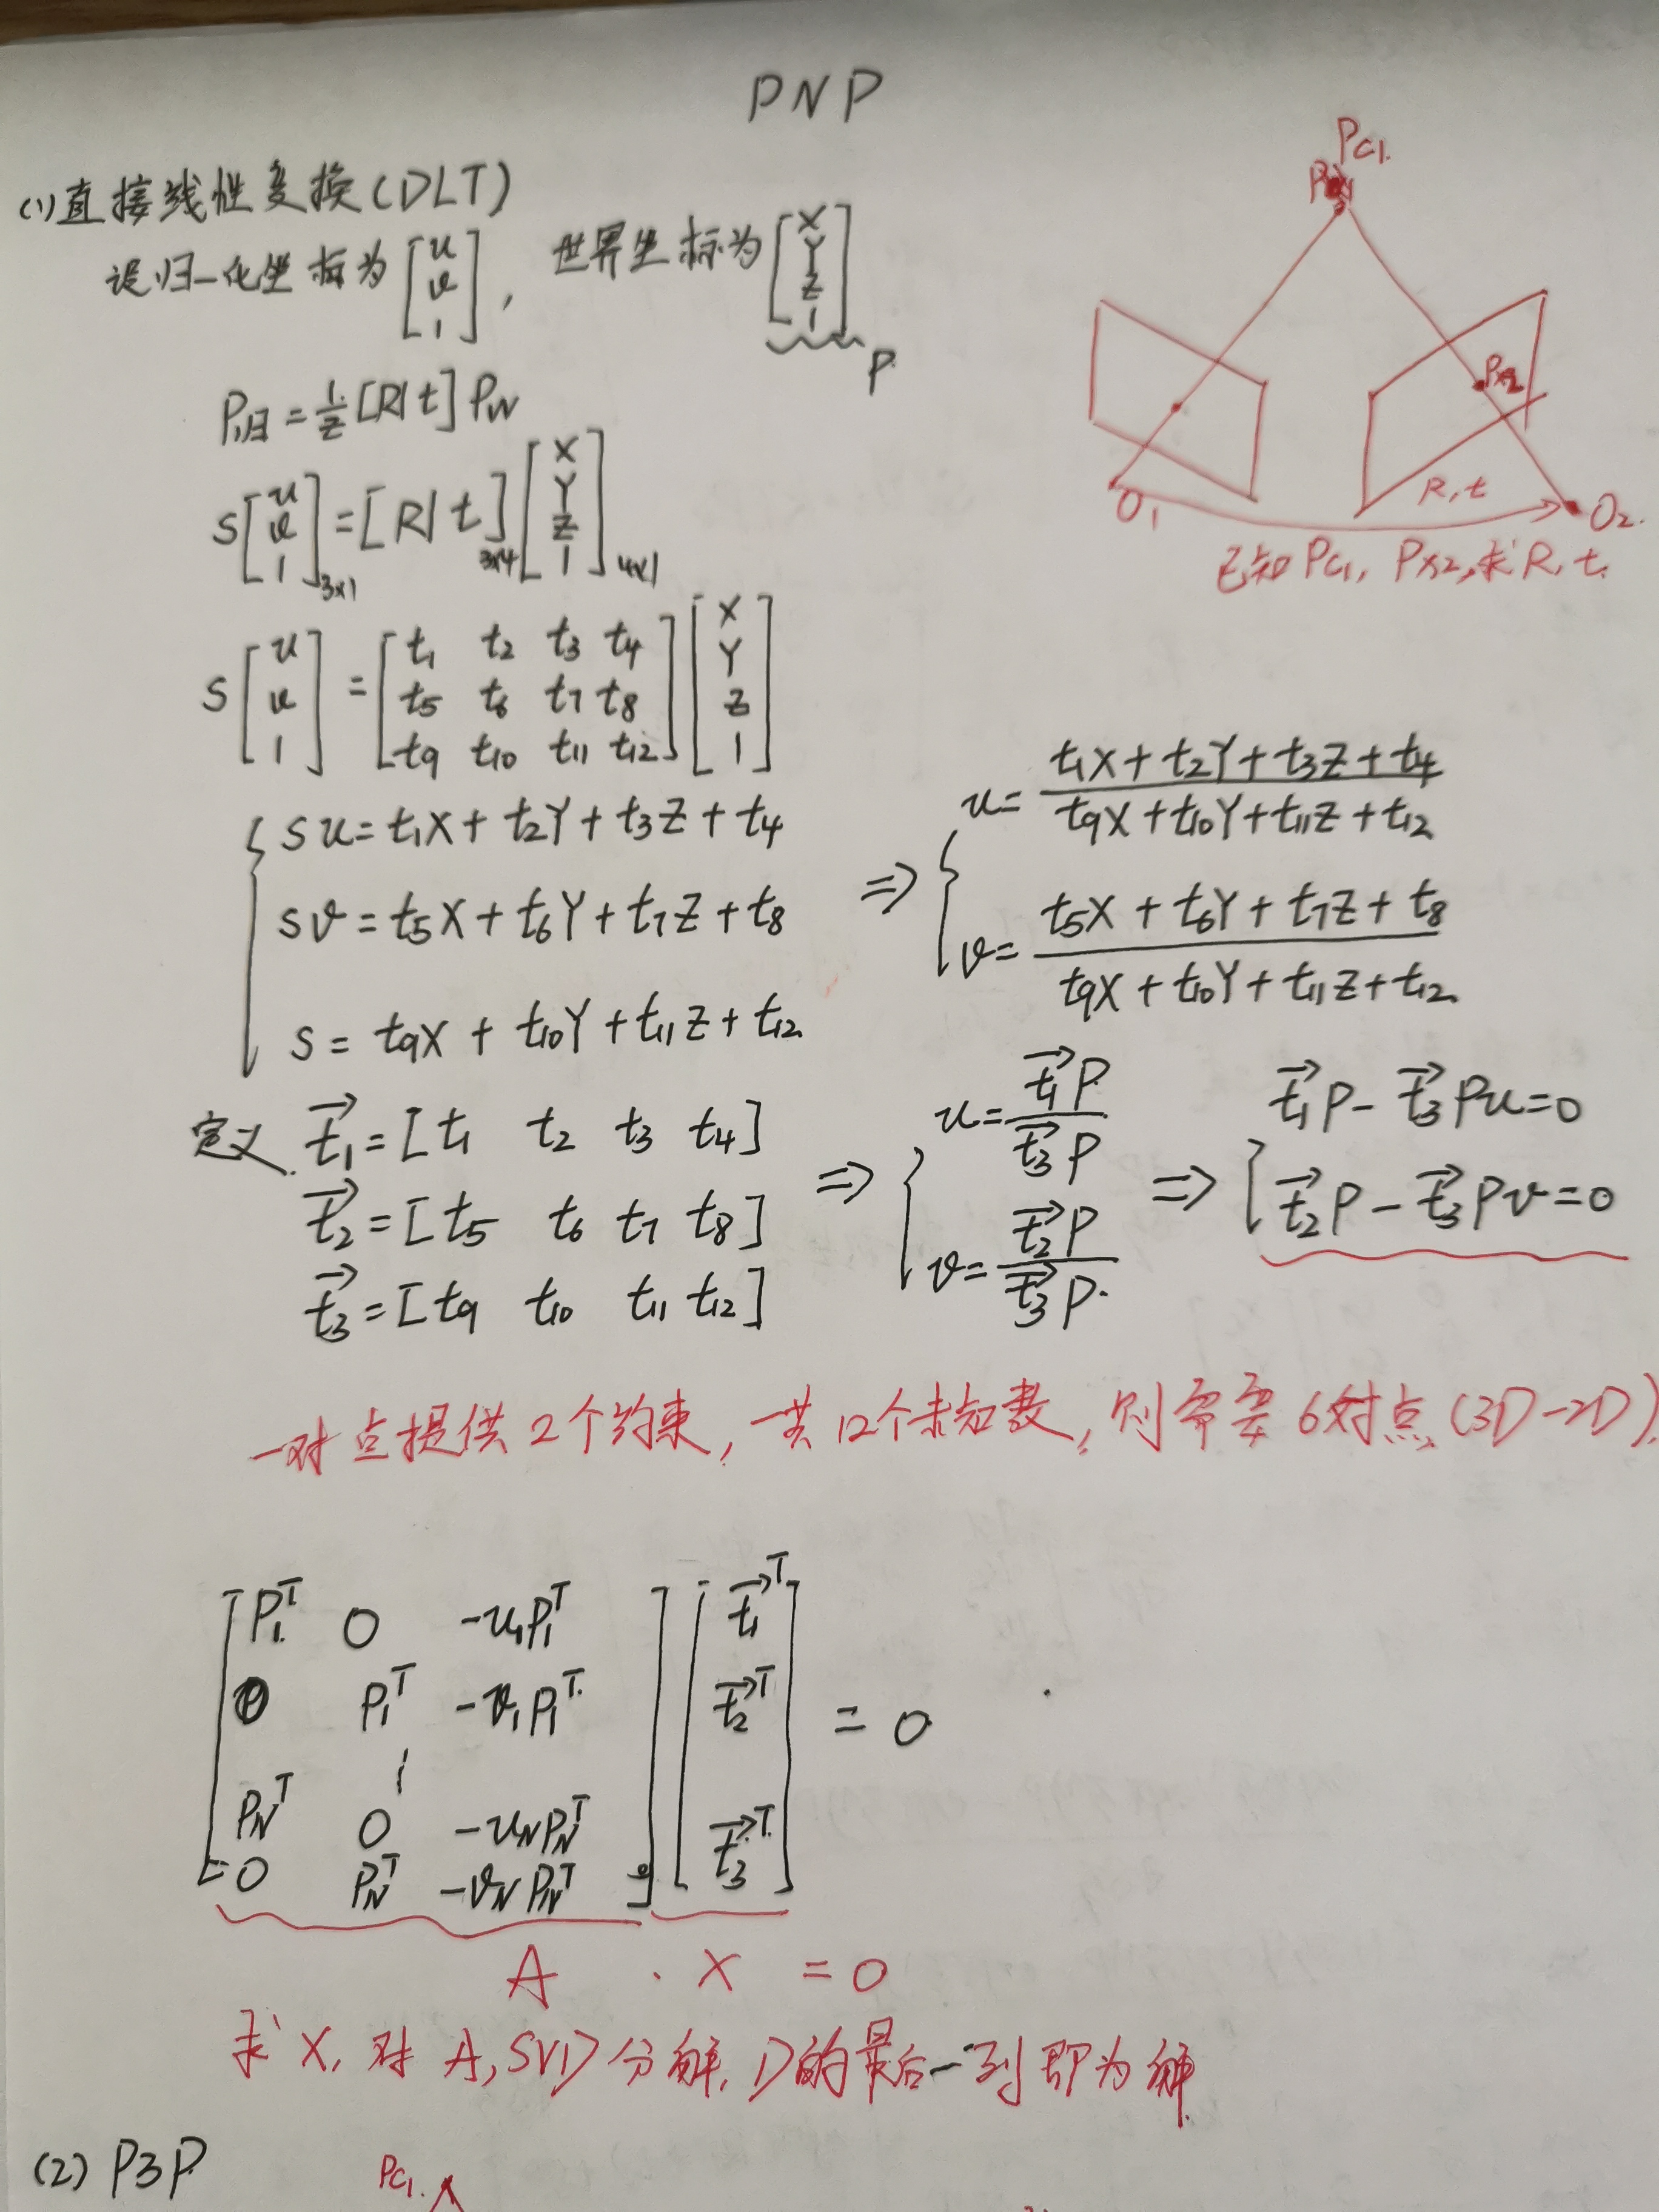 PNP
(1)直接线性变换(DLT)
设归一化坐标为 [u v 1], 世界坐标为 [X Y Z 1] P
P归 = 1/Z [R|t] PW
S [u v 1]3x1 = [R|t]3x4 [X Y Z 1]4x1
S [u v 1] = [t1 t2 t3 t4
t5 t6 t7 t8
t9 t10 t11 t12] [X Y Z 1]
{ Su = t1X + t2Y + t3Z + t4
Sv = t5X + t6Y + t7Z + t8
S = t9X + t10Y + t11Z + t12
⇒ { u = (t1X + t2Y + t3Z + t4) / (t9X + t10Y + t11Z + t12)
v = (t5X + t6Y + t7Z + t8) / (t9X + t10Y + t11Z + t12)
定义 t1→ = [t1 t2 t3 t4]
t2→ = [t5 t6 t7 t8]
t3→ = [t9 t10 t11 t12]
⇒ { u = t1→P / t3→P
v = t2→P / t3→P
⇒ { t1→P - t3→Pu = 0
t2→P - t3→Pv = 0
一对点提供2个约束, 一共12个未知数, 则需要6对点(3D-2D)
[P1^T 0 -u1P1^T
0 P1^T -v1P1^T
⋮
PN^T 0 -uNPN^T
0 PN^T -vNPN^T] [t1→^T t2→^T t3→^T] = 0
A · X = 0
求X, 对A, SVD分解, D的最后一列即为解
(2) P3P
PC1
PC1.
Px2
O1
R,t
O2
已知PC1, Px2, 求R, t.